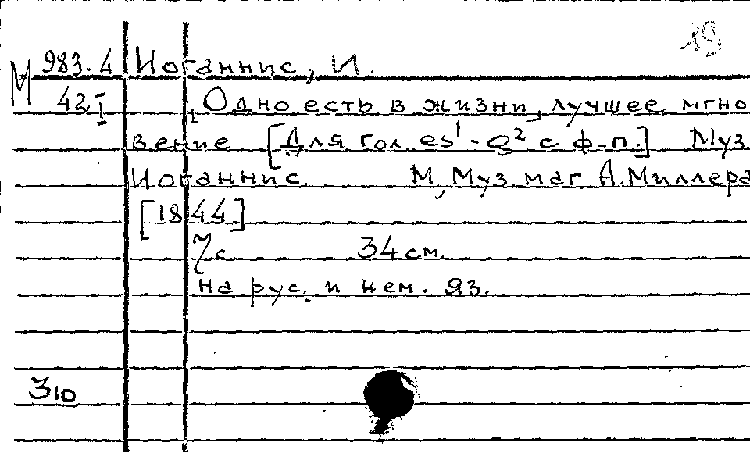 19
М 983.4 Иоганнис, И.
42I Одно есть в жизни лучшее мгно
вение [Для гол. es¹-g² с ф-п.] Муз
Иоганнис М, Муз. маг. А. Миллера
[1844]
7с 34 см.
На рус. и нем. яз.
310